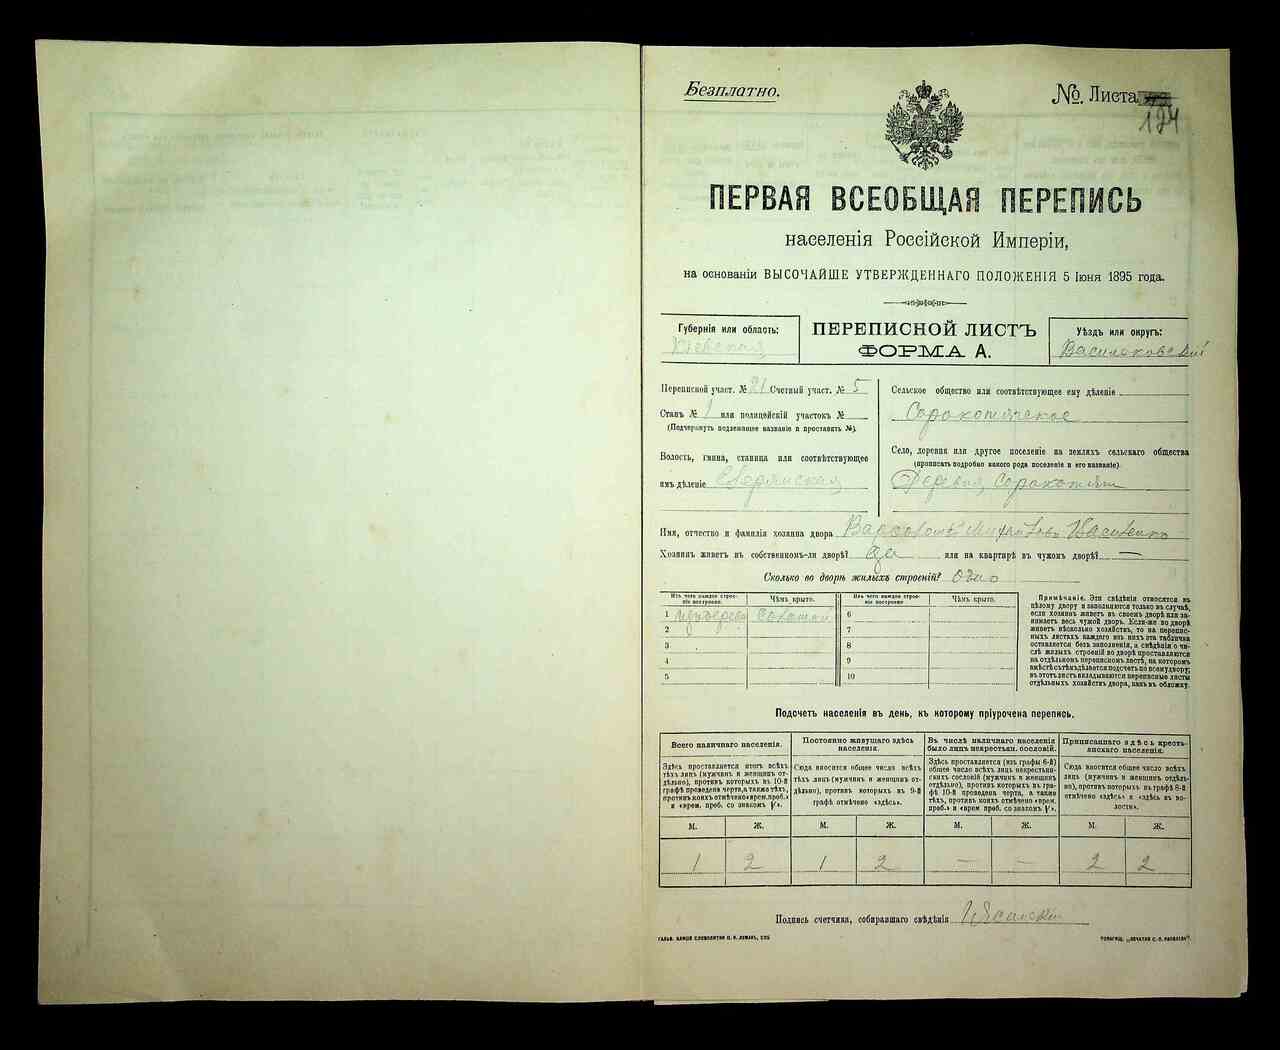 Безплатно.
№. Листа
124
ПЕРВАЯ ВСЕОБЩАЯ ПЕРЕПИСЬ
населенія Россійской Имперіи,
на основаніи ВЫСОЧАЙШЕ УТВЕРЖДЕННАГО ПОЛОЖЕНІЯ 5 Іюня 1895 года.
Губернія или область:
Кіевская
ПЕРЕПИСНОЙ ЛИСТЪ
ФОРМА А.
Уѣздъ или округъ:
Васильковскій
Переписной участ. № 21 Счетный участ. № 5
Станъ № 1 или полицейскій участокъ №
(Подчеркнуть подлежащее названіе и проставить №).
Волость, гмина, станица или соотвѣтствующее
имъ дѣленіе
Сельское общество или соотвѣтствующее ему дѣленіе
Сорокотяжское
Село, деревня или другое поселеніе на земляхъ сельскаго общества
(прописать подробно какого рода поселеніе и его названіе).
Деревня
Имя, отчество и фамилія хозяина двора
Хозяинъ живетъ въ собственном-ли дворѣ? да или на квартирѣ въ чужом дворѣ? —
Сколько во дворѣ жилыхъ строеній? Одно
Изъ чего каждое строеніе построено.
Чѣмъ крыто.
Изъ чего каждое строеніе построено
Чѣмъ крыто.
1 изъ дерева соломой
2
3
4
5
6
7
8
9
10
Примѣчаніе. Эти свѣдѣнія относятся къ
цѣлому двору и заполняются только въ случаѣ,
если хозяинъ живетъ въ своемъ дворѣ или занимаетъ
весь чужой дворъ. Если-же во дворѣ
живетъ нѣсколько хозяйствъ, то на переписныхъ
листахъ каждаго изъ нихъ эта табличка
оставляется безъ заполненія, а свѣдѣнія о числѣ
жилыхъ строеній во дворѣ проставляются
на отдѣльномъ переписномъ листѣ, на которомъ
вмѣстѣ съ тѣмъ дѣлается подсчетъ по всему двору;
въ этотъ листъ вкладываются переписные листы
отдѣльныхъ хозяйствъ двора, какъ въ обложку.
Подсчетъ населенія въ день, къ которому пріурочена перепись.
Всего наличнаго населенія.
Здѣсь проставляется итогъ всѣхъ
тѣхъ лиц (мужчинъ и женщинъ отдѣльно),
противъ которыхъ въ 10-й
графѣ проведена черта, а также тѣхъ,
противъ коихъ отмѣчено «врем. проб.»
и «врем. проб. со знаком V».
Постоянно живущаго здѣсь
населенія.
Сюда вносится общее число всѣхъ
тѣхъ лицъ (мужчинъ и женщинъ отдѣльно),
противъ которыхъ въ 9-й
графѣ отмѣчено «здѣсь».
Въ числѣ наличнаго населенія
было лицъ некрестьян. сословій.
Здѣсь проставляется (изъ графы 6-й)
общее число всѣхъ лицъ некрестьянскихъ
сословій (мужчинъ и женщинъ
отдѣльно), противъ которыхъ въ графѣ
10-й проведена черта, а также
тѣхъ, противъ коихъ отмѣчено «врем.
проб.» и «врем проб. со знаком V».
Приписаннаго здѣсь крестьянскаго
населенія.
Сюда вносится общее число всѣхъ
лицъ (мужчинъ и женщинъ отдѣльно),
противъ которыхъ въ графѣ 8-й
отмѣчено «здѣсь» и «здѣсь въ волости».
М. Ж. М. Ж. М. Ж. М. Ж.
1 2 1 2 — — 2 2
Подпись счетчика, собиравшаго свѣдѣнія